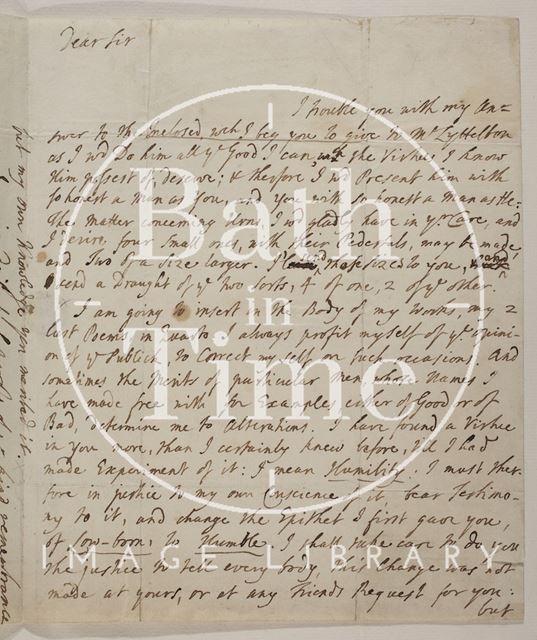 Dear Sir
I trouble you with my An=
swer to the Enclosed wch I beg you to give to Mr. Lyttelton
as I wd do him all ye Good I can wth the Virtues I know
him possest of, deserve; & therefore I wd Present him with
so honest a Man as you, and you with so honest a Man as He.
The Matter concerning Urns, I wd gladly have in yr Care, and
I desire four Small ones, with their Pedestals, may be made
and Two of a size larger. I'll send their sizes to you, and
send a Draught of ye two Sorts; 4 of one, 2 of ye other.
I am going to insert in the Body of my Works, my 2
last Poems in Quarto. I always profit myself of ye Opini-
on of ye Publick, to Correct myself on such occasions. And
sometimes the Merits of particular Men, whose Names I
have made free with for Examples either of Good or of
Bad, determine me to Alterations. I have found a Virtue
in you more, than I certainly knew before, till I had
made Experiment of it: I mean Humility. I must ther-
fore in justice to my own Conscience of it, bear Testimo-
ny to it, and change the Epithet I first gave you,
of low-born, to Humble. I shall take care to do you
the justice to tell every body, this Change was not
made at yours, or at any Friends Request for you:
but
but my own Knowledge you merited it.
Bath
in
Time
IMAGE LIBRARY